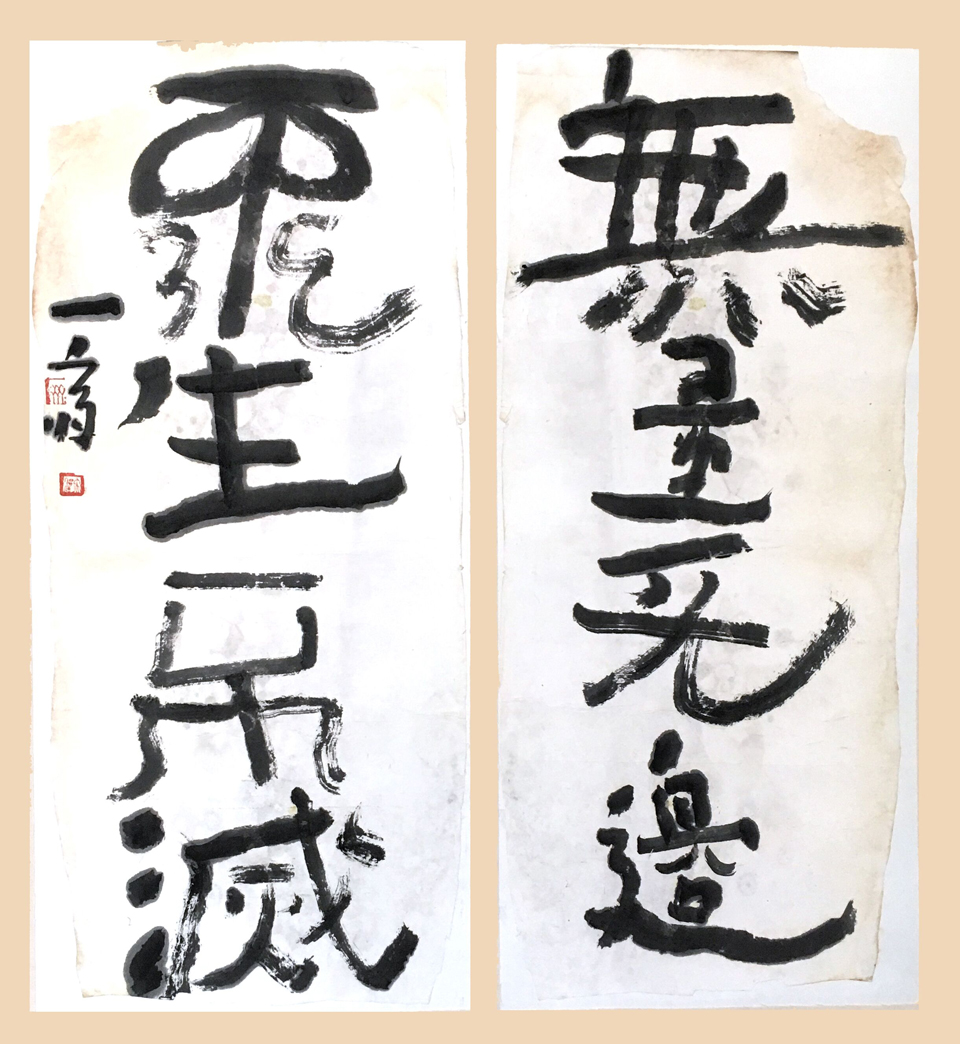 無量无邊
不生不滅
一